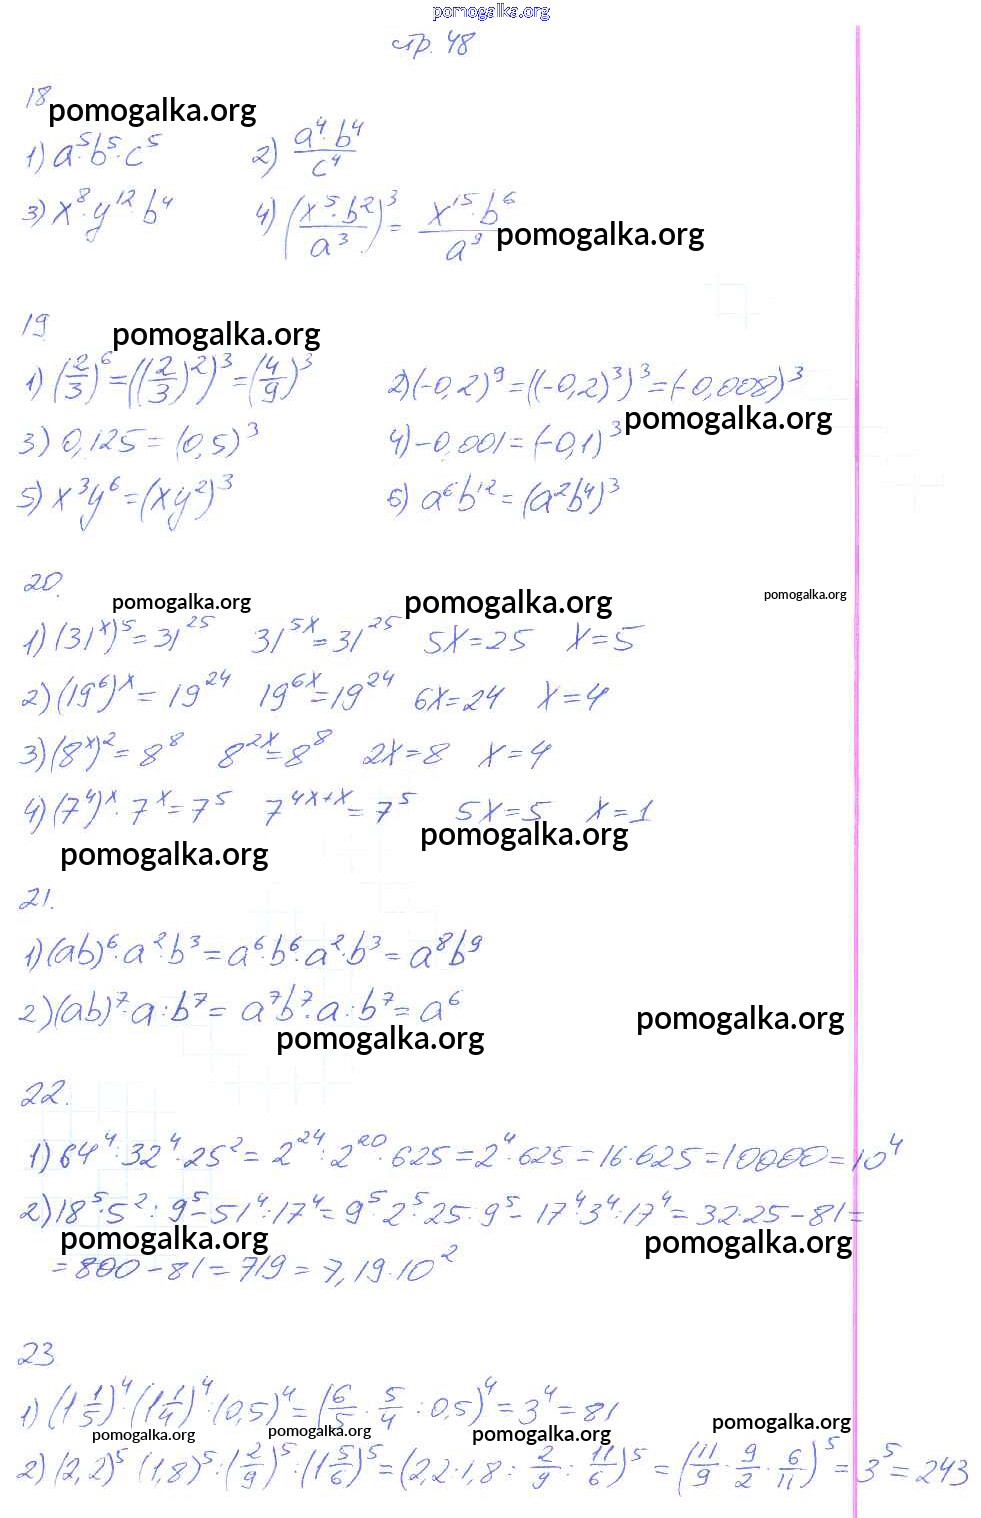 pomogalka.org
стр. 48
18
pomogalka.org
1) a⁵·b⁵·c⁵ 2) a⁴·b⁴/c⁴
3) x⁸·y¹²·b⁴ 4) (x⁵·b²/a³)³ = x¹⁵·b⁶/a⁹
pomogalka.org
19
pomogalka.org
1) (2/3)⁶ = ((2/3)²)³ = (4/9)³ 2) (-0,2)⁹ = ((-0,2)³)³ = (-0,008)³
pomogalka.org
3) 0,125 = (0,5)³ 4) -0,001 = (-0,1)³
5) x³y⁶ = (xy²)³ 6) a⁶b¹² = (a²b⁴)³
20.
pomogalka.org pomogalka.org pomogalka.org
1) (31ˣ)⁵ = 31²⁵ 31⁵ˣ = 31²⁵ 5x = 25 x = 5
2) (19⁶)ˣ = 19²⁴ 19⁶ˣ = 19²⁴ 6x = 24 x = 4
3) (8ˣ)² = 8⁸ 8²ˣ = 8⁸ 2x = 8 x = 4
4) (7⁴)ˣ · 7ˣ = 7⁵ 7⁴ˣ⁺ˣ = 7⁵ 5x = 5 x = 1
pomogalka.org pomogalka.org
21.
1) (ab)⁶·a²·b³ = a⁶·b⁶·a²·b³ = a⁸b⁹
2) (ab)⁷·a:b⁷ = a⁷b⁷·a:b⁷ = a⁶
pomogalka.org pomogalka.org
22.
1) 64⁴:32⁴·25² = 2²⁴:2²⁰·625 = 2⁴·625 = 16·625 = 10000 = 10⁴
2) 18⁵·5²:9⁵-51⁴:17⁴ = 9⁵·2⁵·25·9⁵- 17⁴·3⁴:17⁴ = 32·25-81 =
pomogalka.org pomogalka.org
= 800-81 = 719 = 7,19·10²
23
1) (1 1/5)⁴·(1 1/4)⁴:(0,5)⁴ = (6/5 · 5/4 : 0,5)⁴ = 3⁴ = 81
pomogalka.org pomogalka.org pomogalka.org pomogalka.org
2) (2,2)⁵ (1,8)⁵:(2/9)⁵:(1 5/6)⁵ = (2,2·1,8 : 2/9 : 11/6)⁵ = (11/9 · 9/2 · 6/11)⁵ = 3⁵ = 243